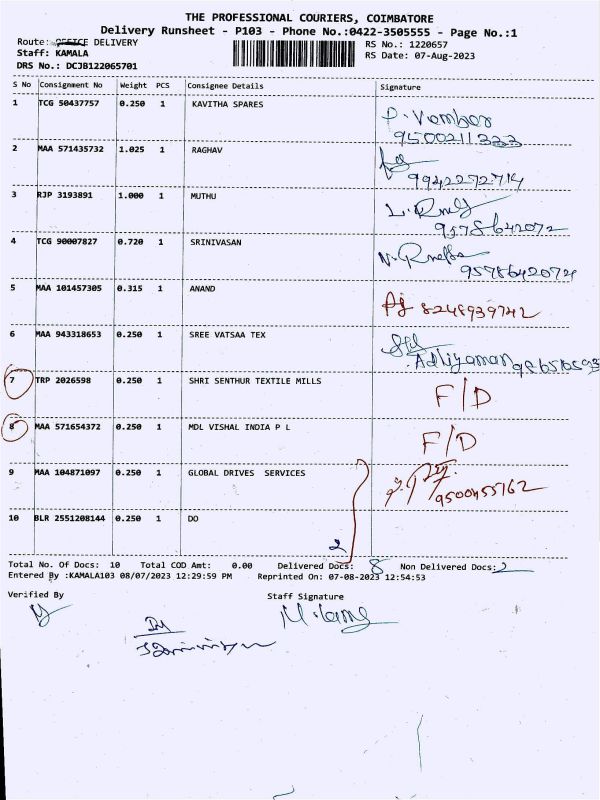 THE PROFESSIONAL COURIERS, COIMBATORE
Delivery Runsheet - P103 - Phone No.:0422-3505555 - Page No.:1
Route: OFFICE DELIVERY
RS No.: 1220657
Staff: KAMALA
RS Date: 07-Aug-2023
DRS No.: DCJB122065701
S No Consignment No Weight PCS Consignee Details Signature
1 TCG 50437757 0.250 1 KAVITHA SPARES
9500211333
2 MAA 571435732 1.025 1 RAGHAV
9942272714
3 RJP 3193891 1.000 1 MUTHU
9578642072
4 TCG 90007827 0.720 1 SRINIVASAN
9578642072
5 MAA 101457305 0.315 1 ANAND
8248939742
6 MAA 943318653 0.250 1 SREE VATSAA TEX
Adhiyaman
7 TRP 2026598 0.250 1 SHRI SENTHUR TEXTILE MILLS F/D
8 MAA 571654372 0.250 1 MDL VISHAL INDIA P L F/D
9 MAA 104871097 0.250 1 GLOBAL DRIVES SERVICES
9500455162
10 BLR 2551208144 0.250 1 DO
2
Total No. Of Docs: 10 Total COD Amt: 0.00 Delivered Docs: 8 Non Delivered Docs: 2
Entered By :KAMALA103 08/07/2023 12:29:59 PM Reprinted On: 07-08-2023 12:54:53
Verified By Staff Signature